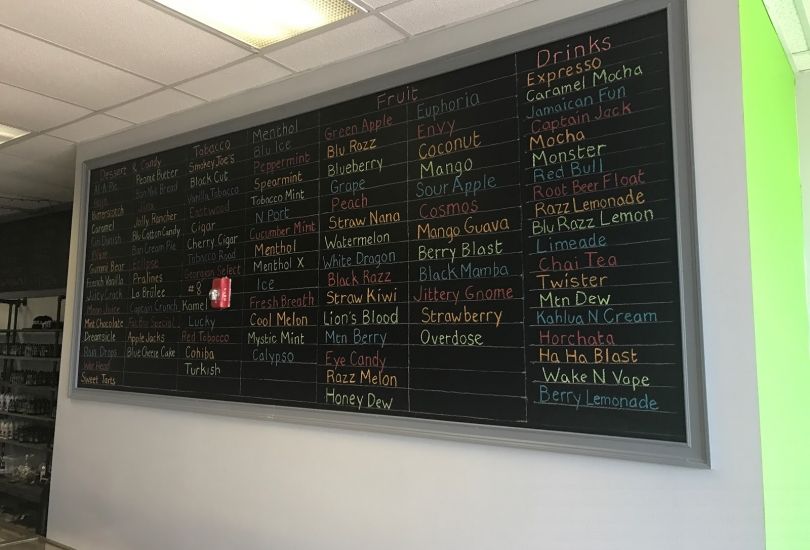 Dessert & Candy
Al-A-Pie
Butterscotch
Caramel
Gummi Bear
French Vanilla
Juicy Crack
Moon Juice
Mint Chocolate
Dreamsicle
Rain Drops
War Head
Sweet Tarts
Peanut Butter
Jolly Rancher
Blu Cotton Candy
Eclipse
Pralines
La Brulee
Captain Crunch
Apple Jacks
Blue Cheese Cake
Tobacco
Smokey Joe's
Black Cut
Vanilla Tobacco
Eastwood
Cigar
Cherry Cigar
Tobacco Road
Georgian Select
#8
Kamel
Lucky
Red Tobacco
Cohiba
Turkish
Menthol
Blu Ice
Peppermint
Spearmint
Tobacco Mint
N Port
Cucumber Mint
Menthol
Menthol X
Ice
Fresh Breath
Cool Melon
Mystic Mint
Calypso
Fruit
Green Apple
Blu Razz
Blueberry
Grape
Peach
Straw Nana
Watermelon
White Dragon
Black Razz
Straw Kiwi
Lion's Blood
Mtn Berry
Eye Candy
Razz Melon
Honey Dew
Euphoria
Envy
Coconut
Mango
Sour Apple
Cosmos
Mango Guava
Berry Blast
Black Mamba
Jittery Gnome
Strawberry
Overdose
Drinks
Expresso
Caramel Mocha
Jamaican Fun
Captain Jack
Mocha
Monster
Red Bull
Root Beer Float
Razz Lemonade
Blu Razz Lemon
Limeade
Chai Tea
Twister
Mtn Dew
Kahlua N Cream
Horchata
Ha Ha Blast
Wake N Vape
Berry Lemonade